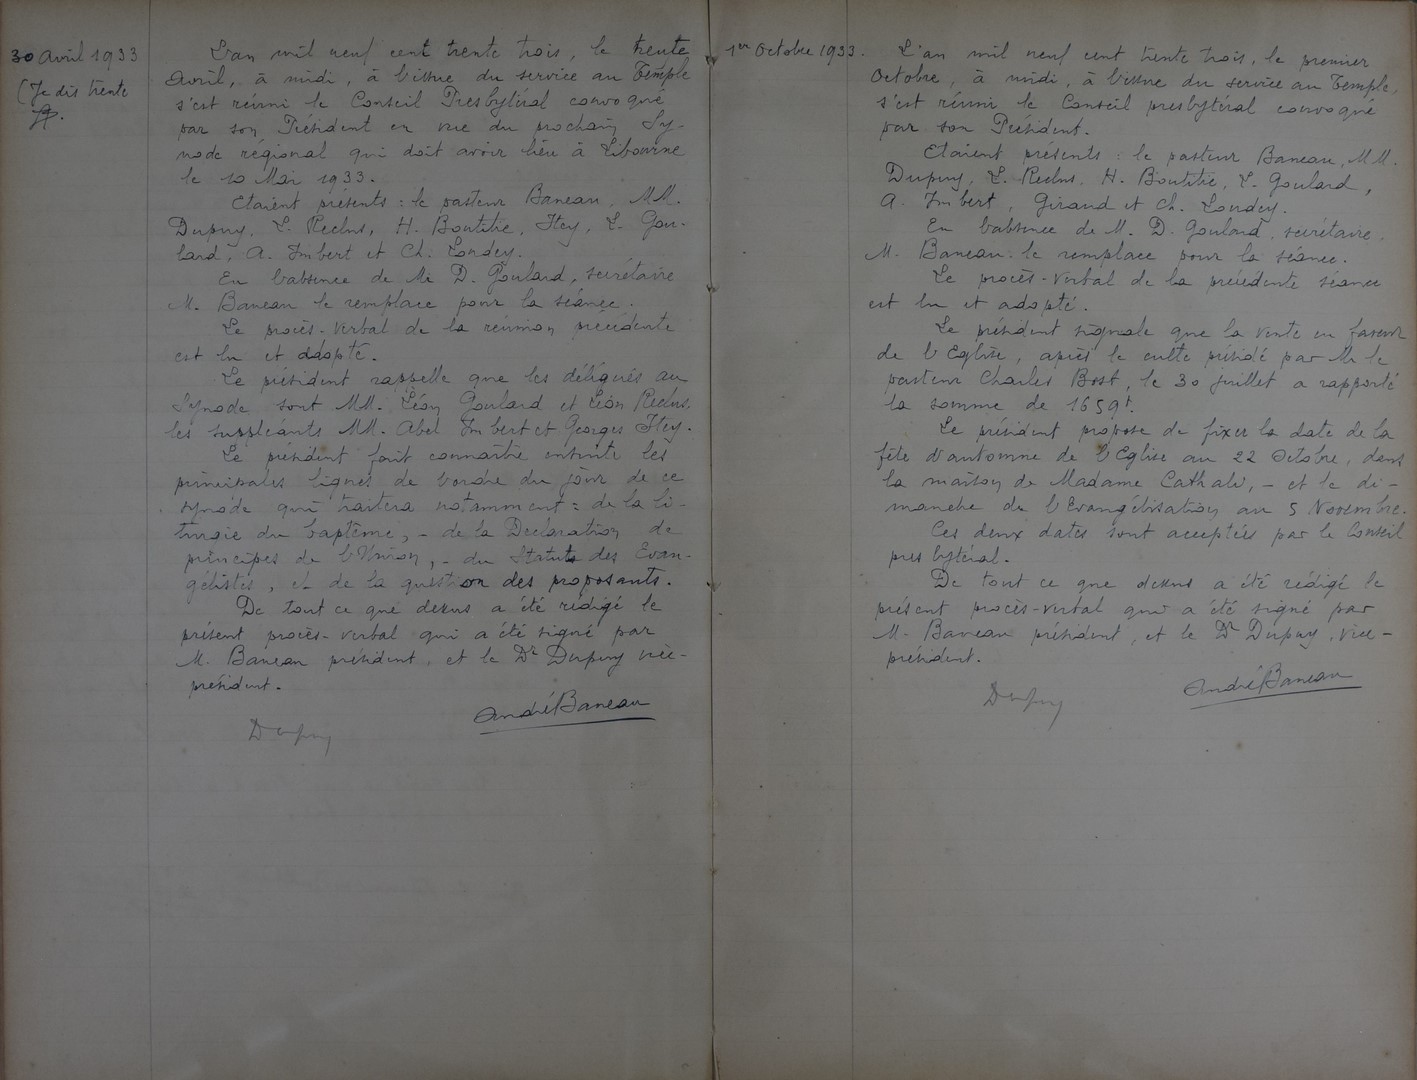 30 Avril 1933
(Je dis trente
L'an mil neuf cent trente trois, le trente
Avril, à midi, à l'issue du service au Temple
s'est réuni le Conseil Presbytéral convoqué
par son Président en vue du prochain Sy-
node régional qui doit avoir lieu à Libourne
le 10 Mai 1933.
Etaient présents : le pasteur Baneau, MM.
Dupuy, L. Reclus, H. Boutitie, Itey, L. Gou-
lard, A. Imbert et Ch. Londey.
En l'absence de Mr D. Goulard, secrétaire
M. Baneau le remplace pour la séance.
Le procès-verbal de la réunion précédente
est lu et adopté.
Le président rappelle que les délégués au
Synode sont MM. Léon Goulard et Léon Reclus,
les suppléants MM. Abel Imbert et Georges Itey.
Le président fait connaître ensuite les
principales lignes de l'ordre du jour de ce
synode qui traitera notamment : de la li-
turgie du baptême, - de la Déclaration de
principes de l'Union, - du Statut des Evan-
gélistes, et de la question des proposants.
De tout ce que dessus a été rédigé le
présent procès-verbal qui a été signé par
M. Baneau président, et le Dr Dupuy vice-
président.
Dupuy
André Baneau
1er Octobre 1933.
L'an mil neuf cent trente trois, le premier
Octobre, à midi, à l'issue du service au Temple,
s'est réuni le Conseil presbytéral convoqué
par son Président.
Etaient présents : le pasteur Baneau, MM.
Dupuy, L. Reclus, H. Boutitie, L. Goulard,
A. Imbert, Giraud et Ch. Londey.
En l'absence de M. D. Goulard, secrétaire,
M. Baneau le remplace pour la séance.
Le procès-verbal de la précédente séance
est lu et adopté.
Le président signale que la vente en faveur
de l'Eglise, après le culte présidé par Mr le
pasteur Charles Bost, le 30 juillet a rapporté
la somme de 1659f.
Le président propose de fixer la date de la
fête d'automne de l'Eglise au 22 Octobre, dans
la maison de Madame Cathala, - et le di-
manche de l'Evangélisation au 5 Novembre.
Ces deux dates sont acceptées par le Conseil
presbytéral.
De tout ce que dessus a été rédigé le
présent procès-verbal qui a été signé par
M. Baneau président, et le Dr Dupuy, vice-
président.
Dupuy
André Baneau